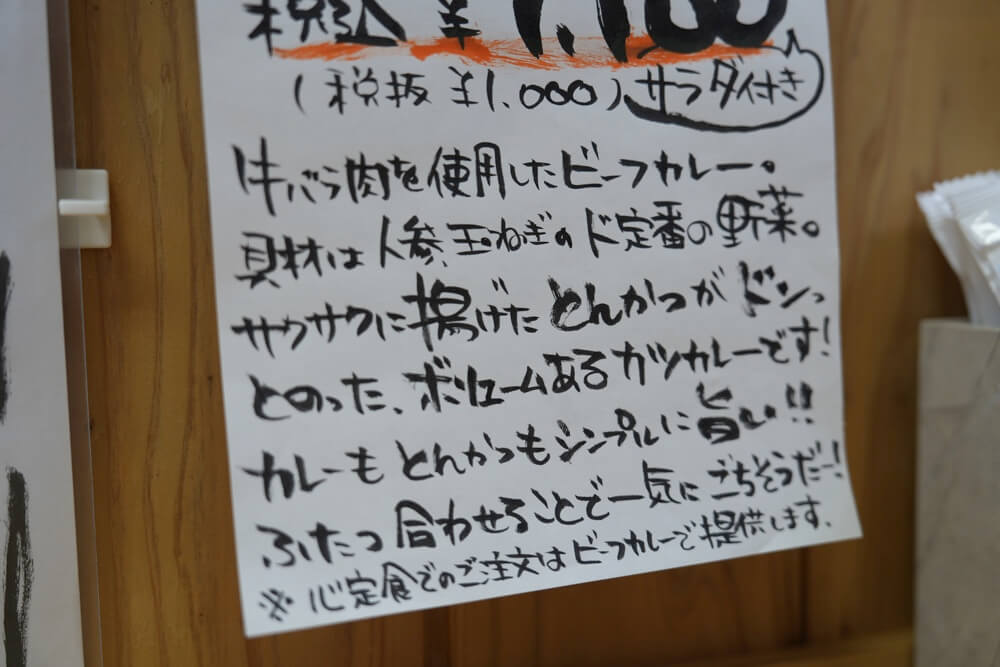 税込 ¥1,100
(税抜 ¥1,000) サラダ付き
牛バラ肉を使用したビーフカレー。
具材は人参玉ねぎのド定番の野菜。
サクサクに揚げたとんかつがドンっ
とのった、ボリュームあるガツカレーです!
カレーもとんかつもシンプルに旨い!!
ふたつ合わせることで一気にごちそうだー!
※心定食でのご注文はビーフカレーで提供します.